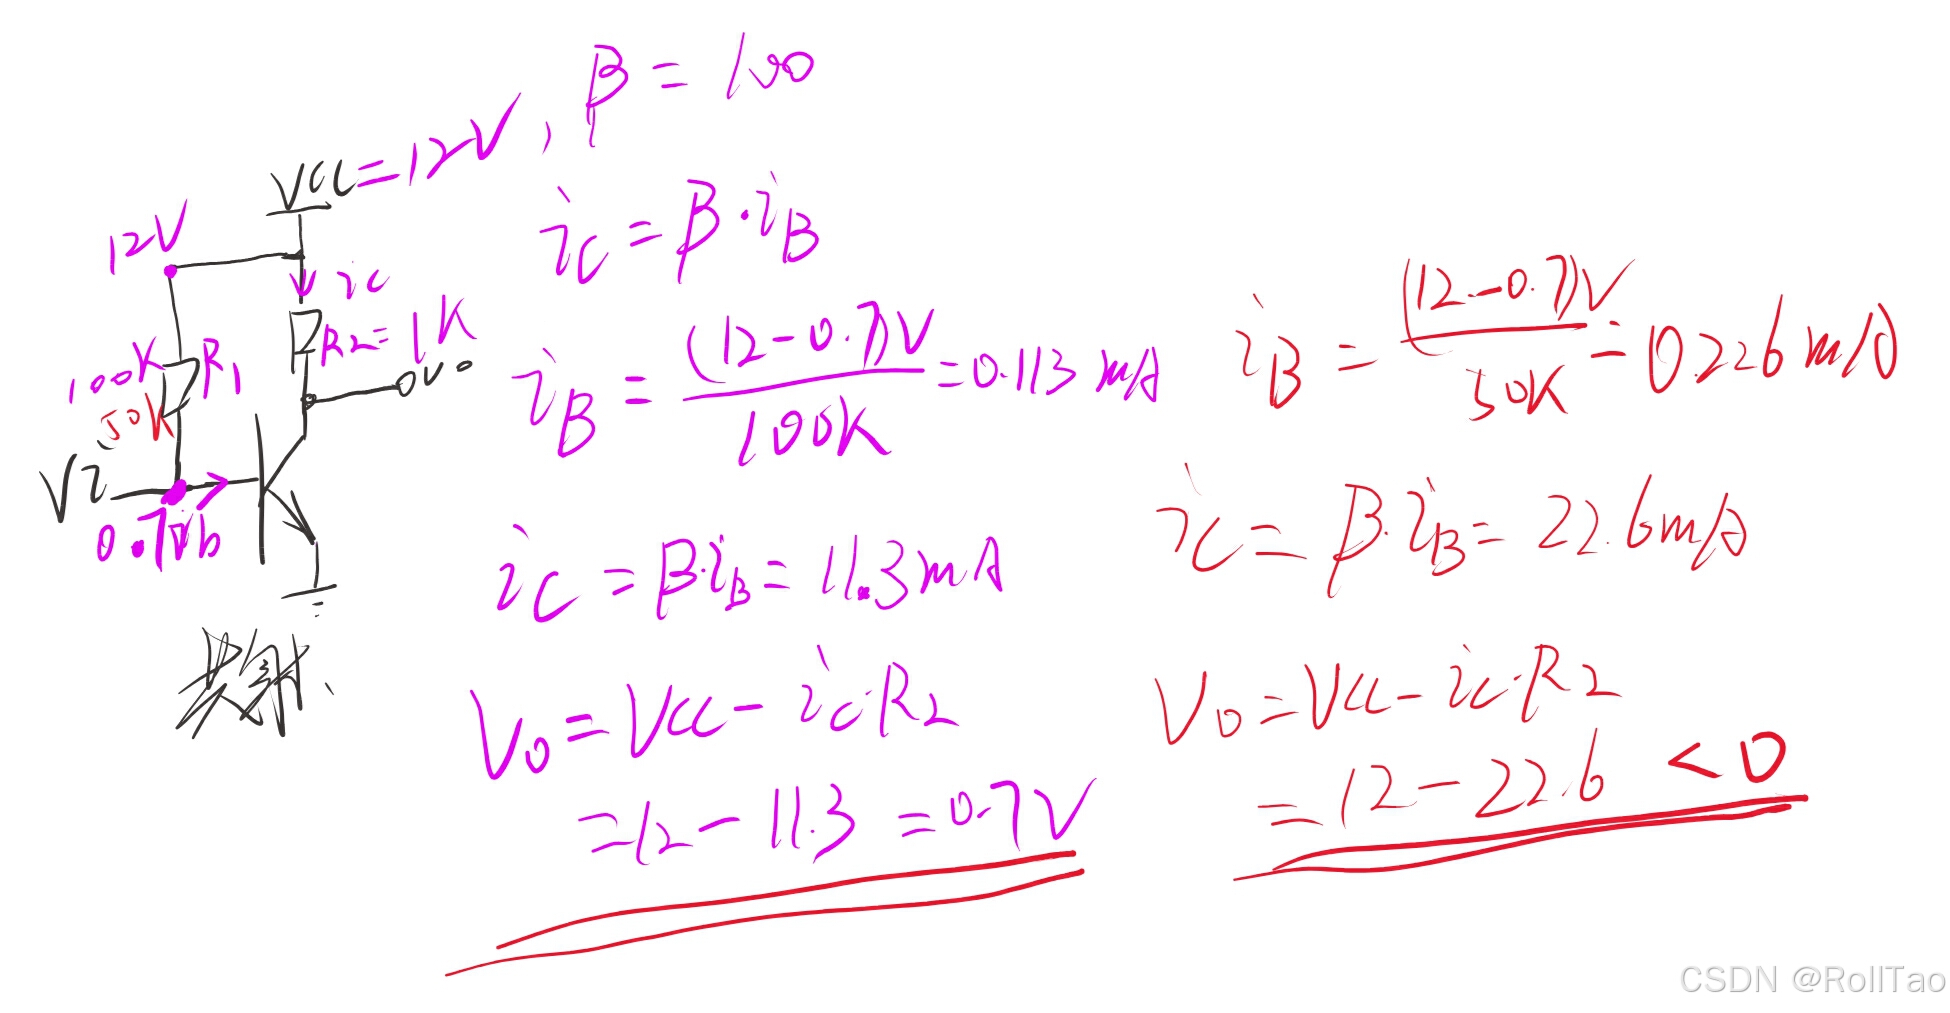 β = 100
VCC = 12V,
12V
ic
100K R1
50K
R2 = 1K
Vo
Vi
0.7V ib
共射、
iC = β·iB
iB = (12-0.7)V / 100K = 0.113 mA
iC = β·iB = 11.3mA
Vo = VCC - iC·R2
= 12 - 11.3 = 0.7V
iB = (12-0.7)V / 50K = 0.226 mA
iC = β·iB = 22.6mA
Vo = VCC - iC·R2
= 12 - 22.6 < 0
CSDN @RollTao